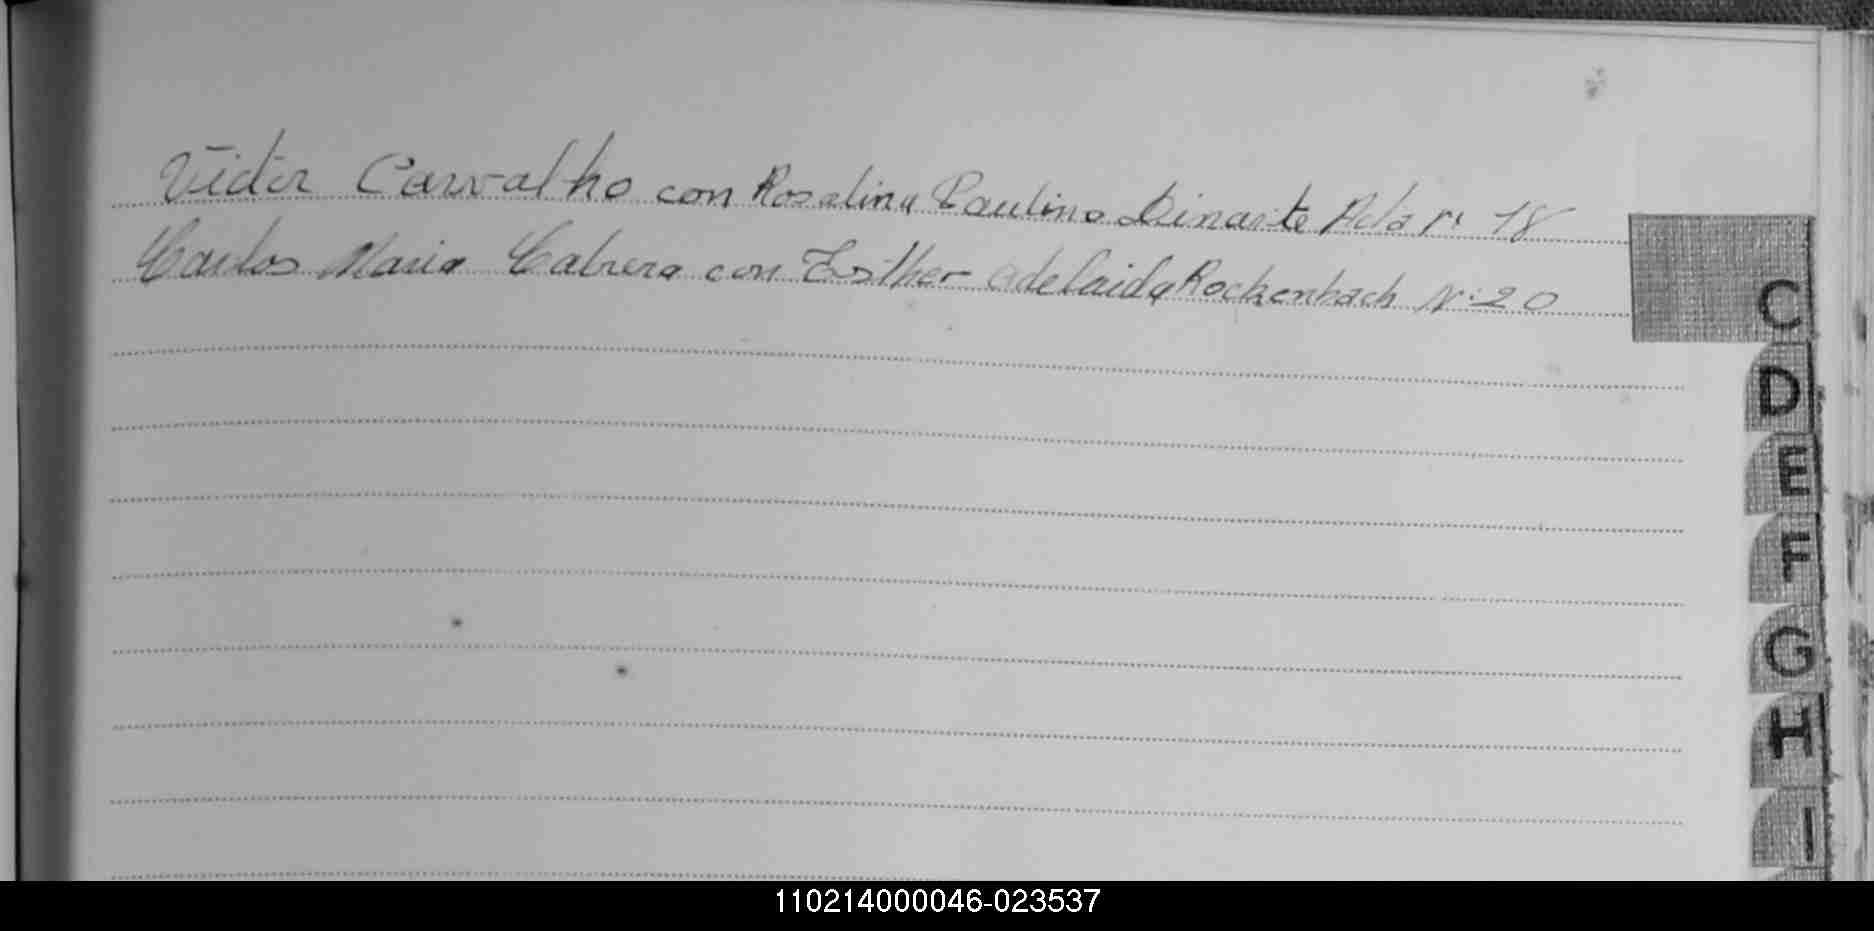 Victor Carvalho con Rosalina Paulino Dinarte Acta nº 18
Carlos Maria Cabrera con Esther Adelaida Rockenbach Nº 20
C
D
E
F
G
H
I
110214000046-023537